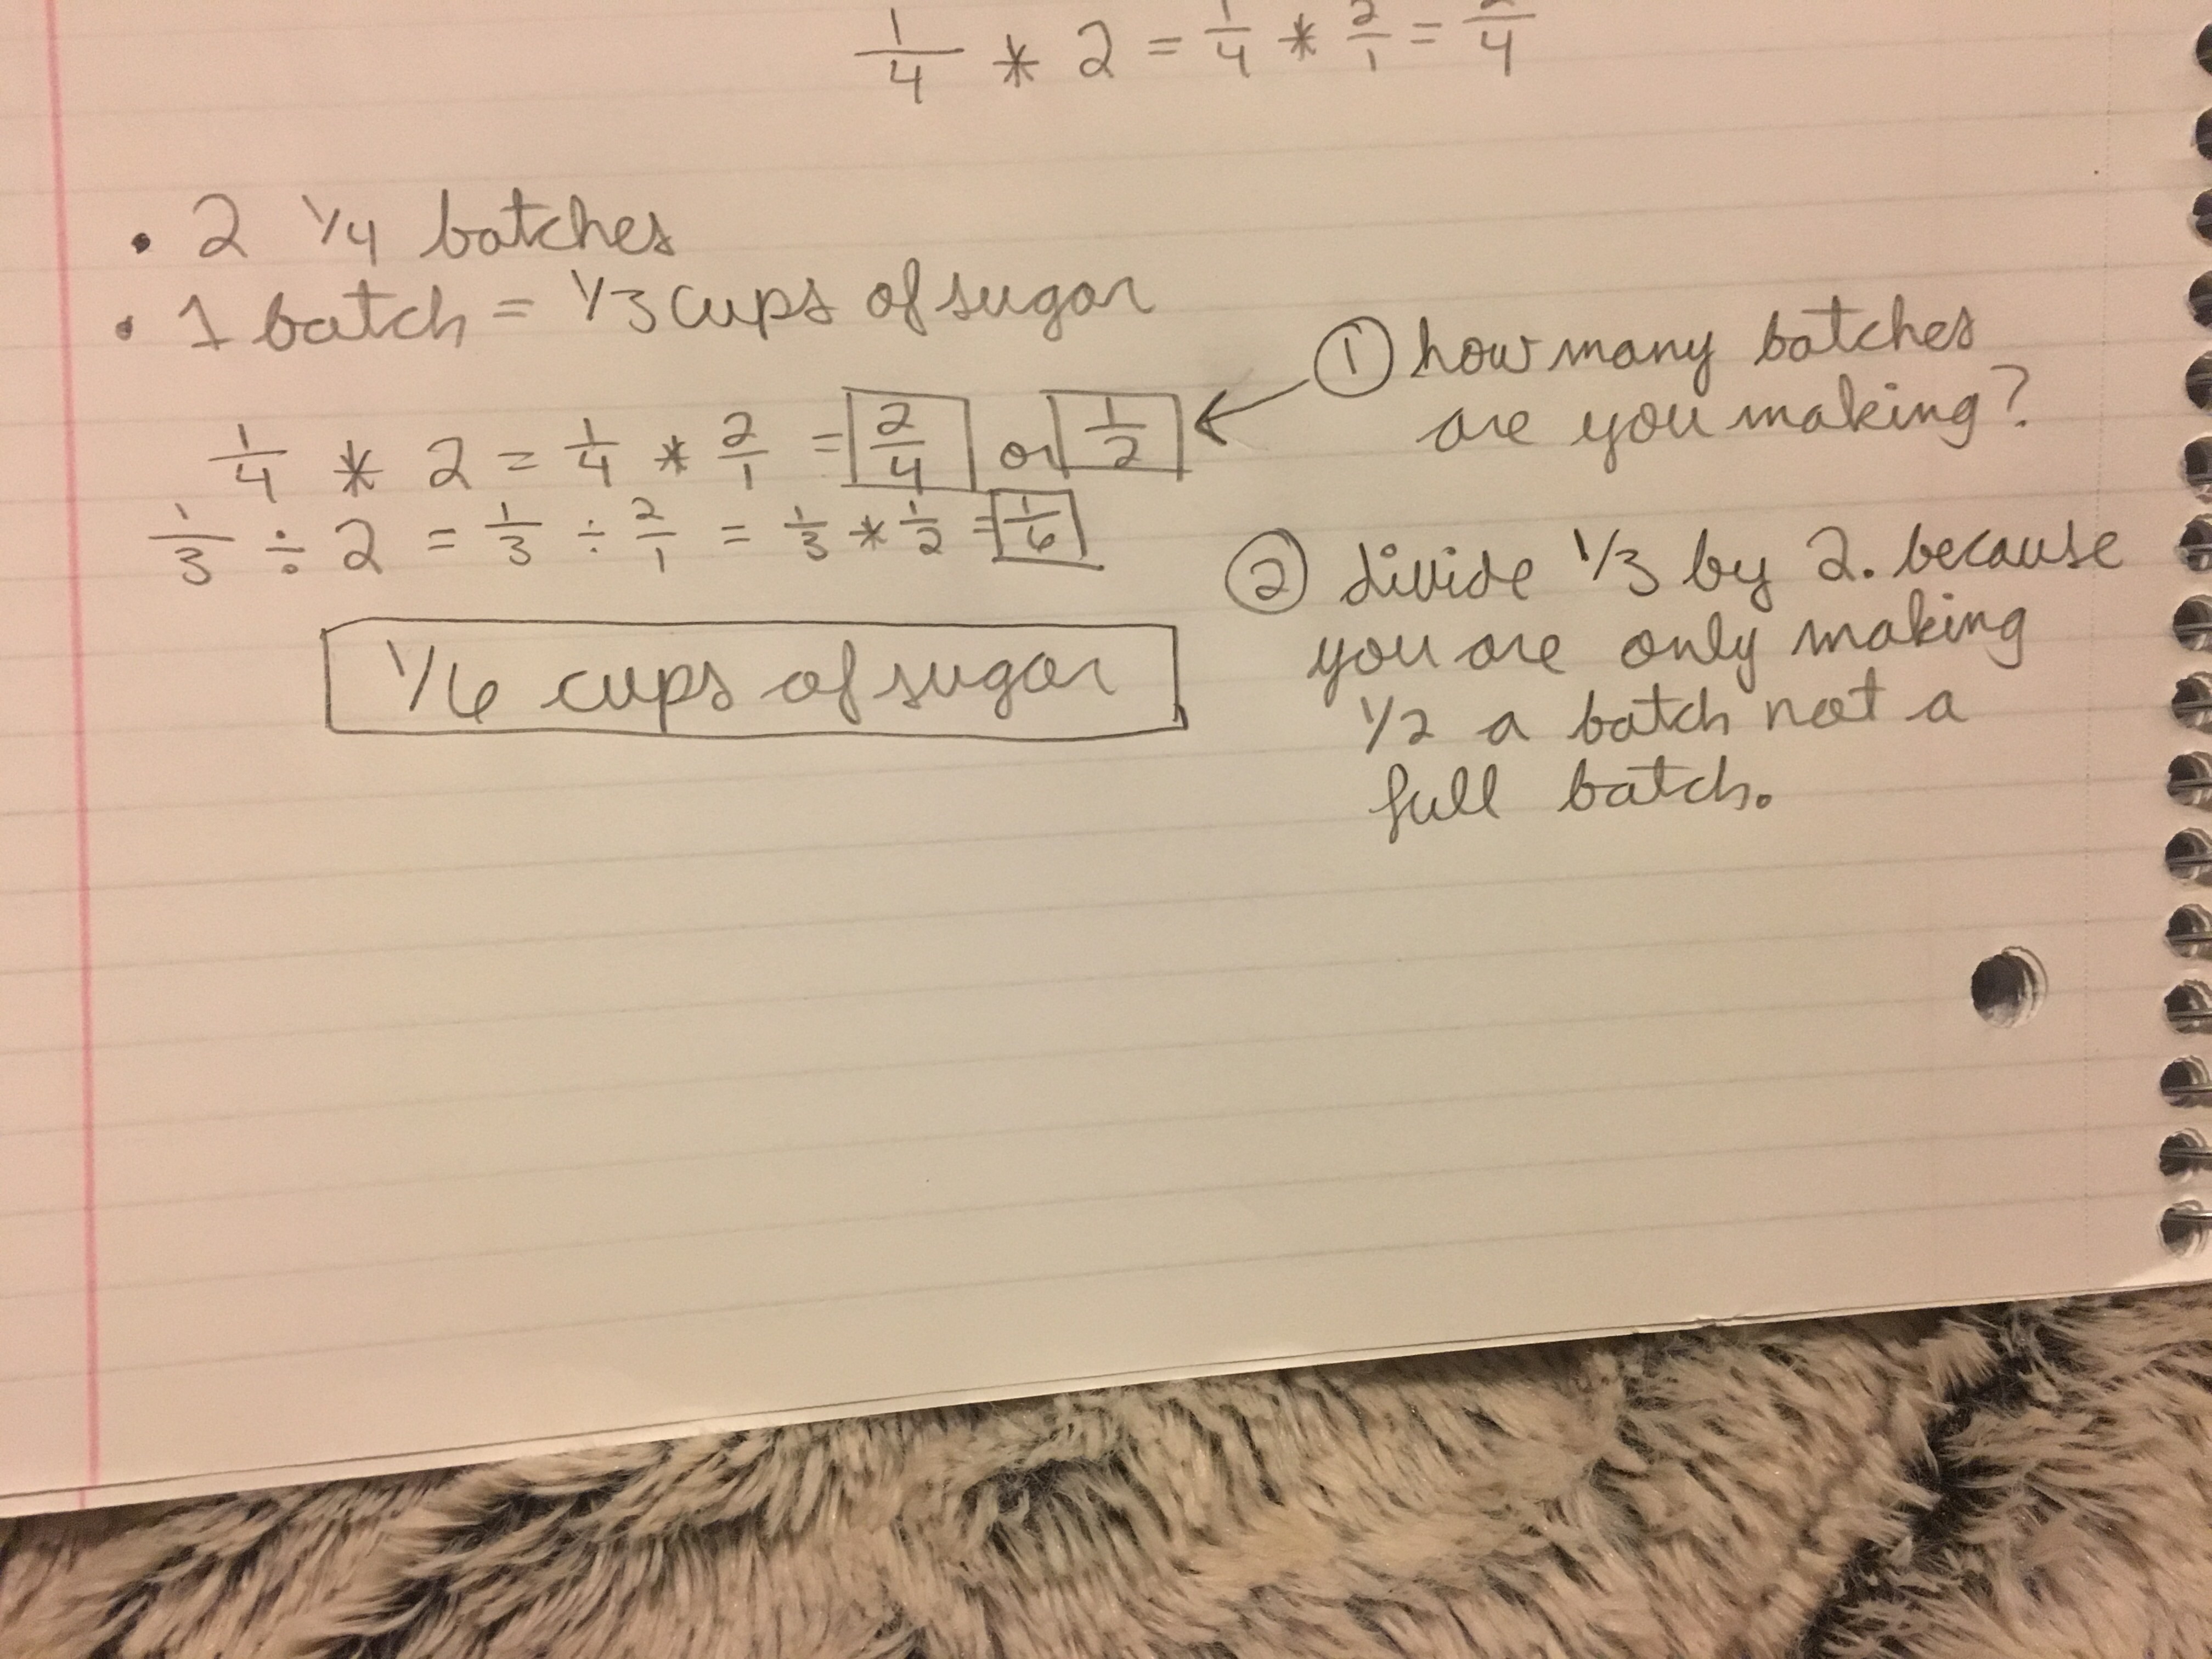 1/4 * 2 = 1/4 * 2/1 = 2/4
• 2 1/4 batches
• 1 batch = 1/3 cups of sugar
1/4 * 2 = 1/4 * 2/1 = 2/4 or 1/2
1/3 ÷ 2 = 1/3 ÷ 2/1 = 1/3 * 1/2 = 1/6
1/6 cups of sugar
① how many batches
are you making?
② divide 1/3 by 2. because
you are only making
1/2 a batch not a
full batch.